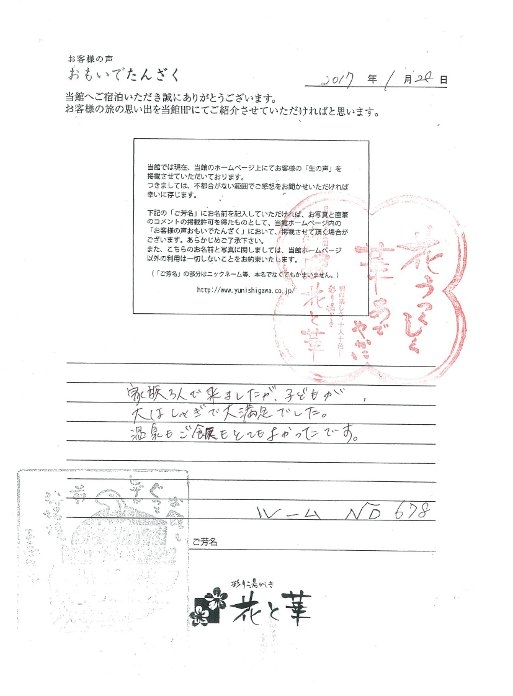 お客様の声
おもいでたんざく
2017 年 1 月 28 日
当館へご宿泊いただき誠にありがとうございます。
お客様の旅の思い出を当館HPにてご紹介させていただければと思います。
当館では現在、当館のホームページ上にてお客様の「生の声」を
掲載させていただいております。
つきましては、不都合がない範囲でご感想をお聞かせいただければ
幸いに存じます。
下記の「ご芳名」にお名前を記入していただければ、お写真と直筆
のコメントの掲載許可を得たものとして、当館ホームページ内の
「お客様の声おもいでたんざく」において、掲載させて頂く場合が
ございます。あらかじめご了承下さい。
また、こちらのお名前と写真に関しましては、当館ホームページ
以外の利用は一切しないことをお約束いたします。
（「ご芳名」の部分はニックネーム等、本名でなくてもかまいません。）
http://www.yunishigawa.co.jp/
花うつくしく
華あでやかに
花と華
家族3人で来ましたが、子どもが、
大はしゃぎで大満足でした。
温泉もご飯もとてもよかったです。
ルーム NO 678
ご芳名
彩り湯かしき
花と華